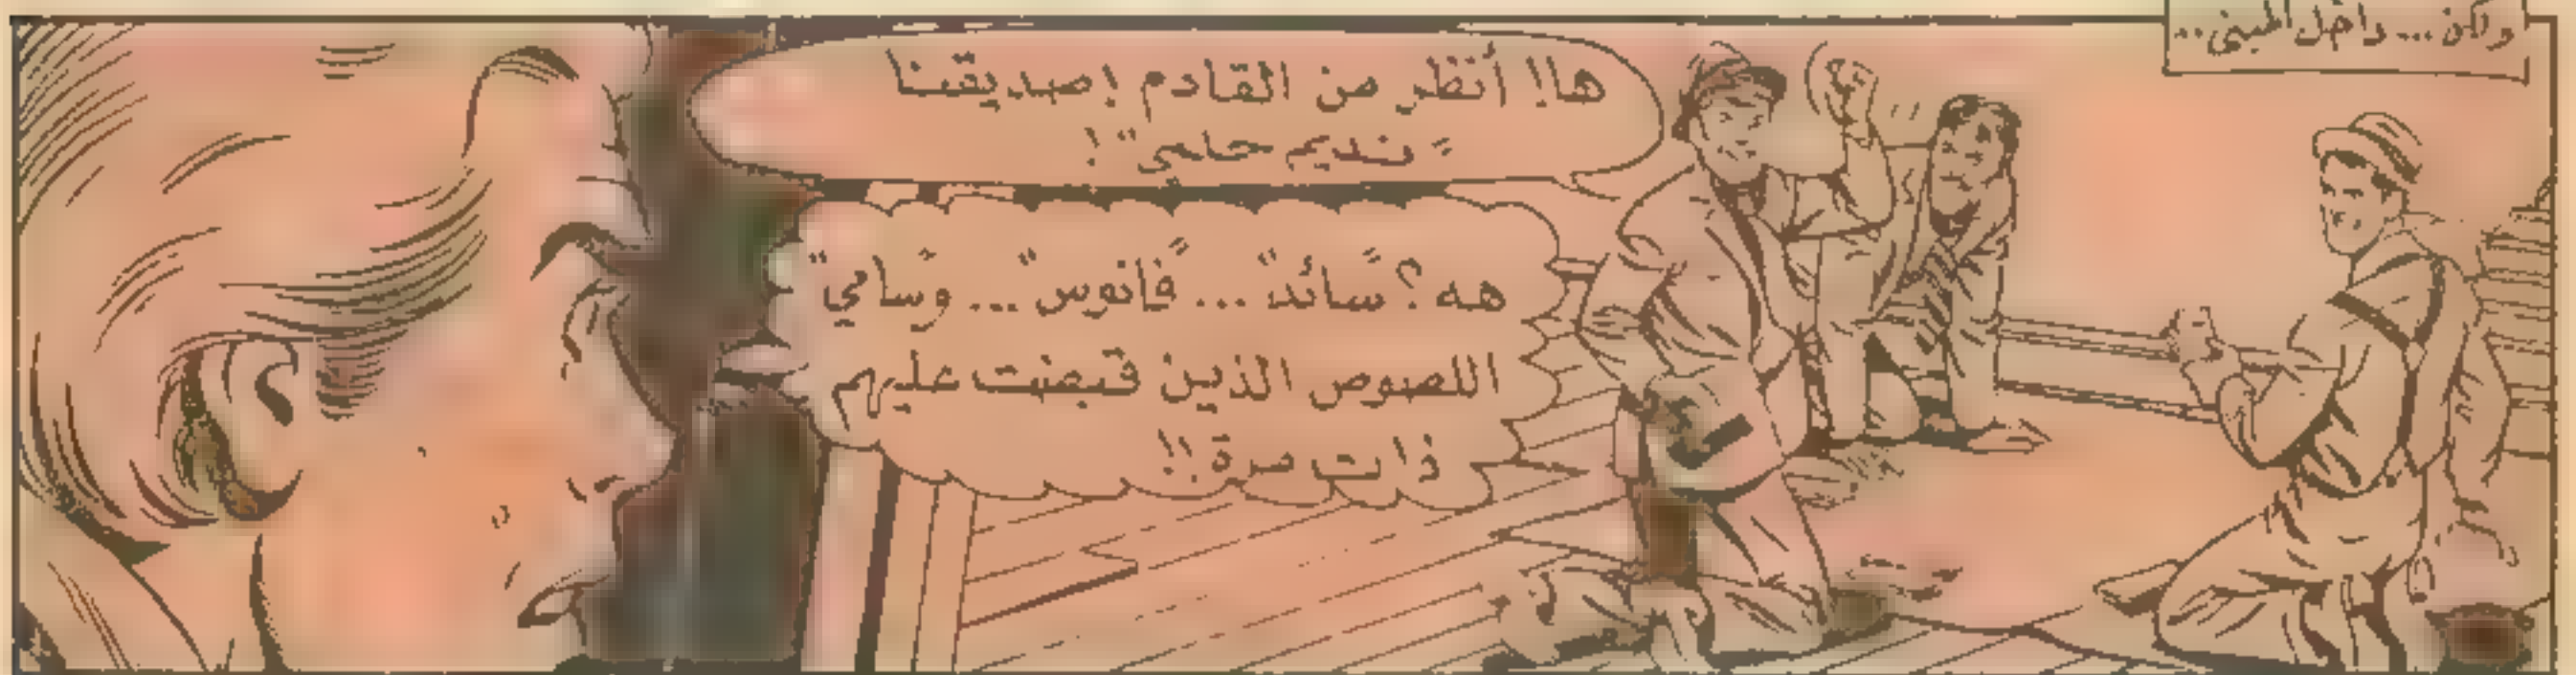 ولكن... داخل المبنى..
ها! أنظر من القادم! صديقنا
"نديم حلمي"!
هه؟ "سائد"... "فانوس"... و"سامي"
اللصوص الذين قبضت عليهم
ذات مرة!!